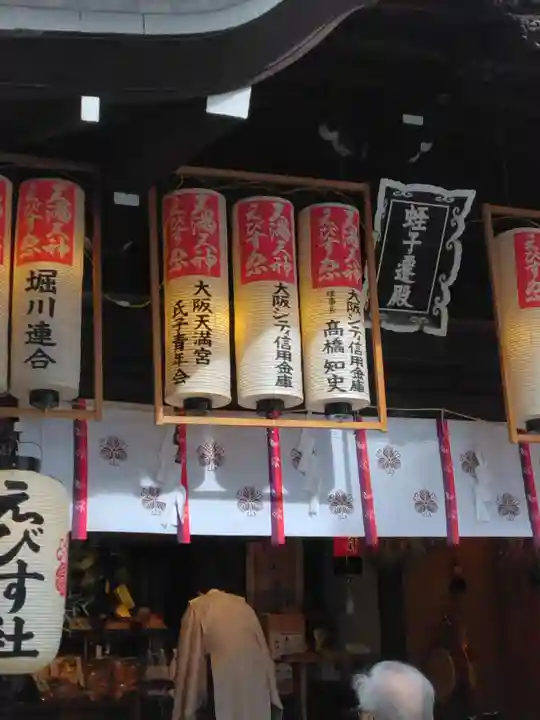 天満天神
えびす祭
堀川連合
天満天神
えびす祭
大阪天満宮
氏子青年会
天満天神
えびす祭
大阪シティ信用金庫
天満天神
えびす祭
大阪シティ信用金庫
理事長 髙橋知史
蛭子遷殿
えびす社